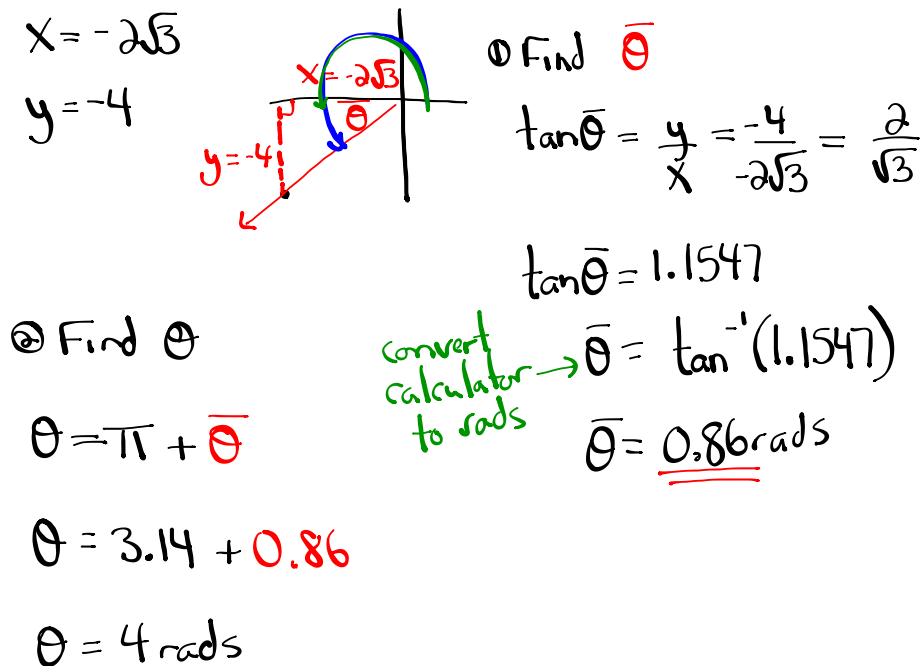 x = -2√3
y = -4
x = -2√3
θ̄
y = -4
① Find θ̄
tan θ̄ = y/x = -4/-2√3 = 2/√3
tan θ̄ = 1.1547
convert calculator to rads → θ̄ = tan⁻¹(1.1547)
θ̄ = 0.86 rads
② Find θ
θ = π + θ̄
θ = 3.14 + 0.86
θ = 4 rads